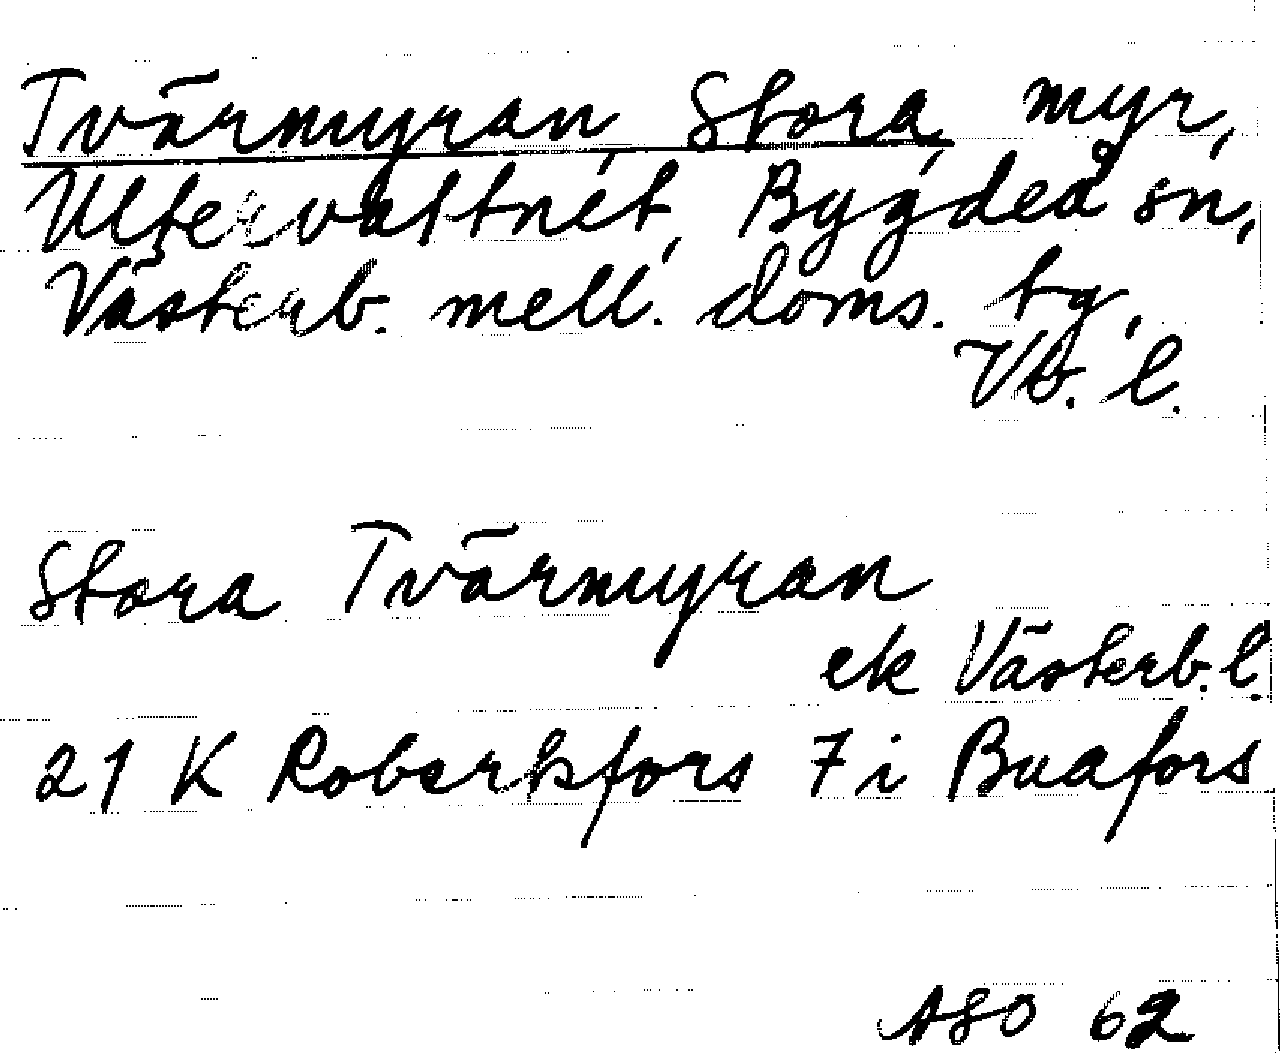 Tvärmyran, Stora, myr,
Ultervattnet, Bygdeå sn,
Västerb. mell. doms. tg,
Vb. l.
Stora Tvärmyran
ek Västerb. l.
21 K Robertsfors 7 i Buafors
ASO 62